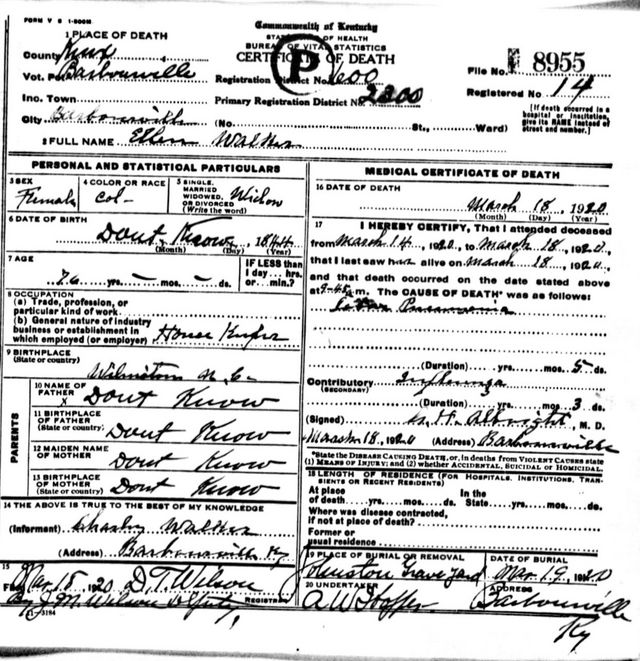 FORM V S 1-500M
Commonwealth of Kentucky
STATE OF HEALTH
BUREAU OF VITAL STATISTICS
CERTIFICATE OF DEATH
P
1 PLACE OF DEATH
County Knox
Vot. Pct. Barbourville
Inc. Town
City Barbourville (No. St., Ward)
Registration District No. 600
Primary Registration District No. 2300
File No. 8955
Registered No. 14
[If death occurred in a hospital or institution, give its NAME instead of street and number.]
2 FULL NAME Ellen Walker
PERSONAL AND STATISTICAL PARTICULARS
3 SEX Female
4 COLOR OR RACE Col-
5 SINGLE, MARRIED WIDOWED, OR DIVORCED (Write the word) Widow
6 DATE OF BIRTH
Dont Know, 1844
(Month) (Day) (Year)
7 AGE
76 yrs. — mos. — ds.
IF LESS than 1 day... hrs. or ...min.?
8 OCCUPATION
(a) Trade, profession, or particular kind of work
(b) General nature of industry business or establishment in which employed (or employer) House Keeper
9 BIRTHPLACE
(State or country)
Wilmington N. C-
PARENTS
10 NAME OF FATHER X Dont Know
11 BIRTHPLACE OF FATHER (State or country) Dont Know
12 MAIDEN NAME OF MOTHER Dont Know
13 BIRTHPLACE OF MOTHER (State or country) Dont Know
14 THE ABOVE IS TRUE TO THE BEST OF MY KNOWLEDGE
(Informant) Charley Walker
(Address) Barbourville Ky
15
Filed Mar 15, 1920 D. T. Wilson
By J M Wilson Deputy, REGISTRAR
11-3184
MEDICAL CERTIFICATE OF DEATH
16 DATE OF DEATH
March 18, 1920
(Month) (Day) (Year)
17 I HEREBY CERTIFY, That I attended deceased
from March 14, 1920, to March 18, 1920,
that I last saw her alive on March 18, 1920,
and that death occurred on the date stated above
at 9-45 m. The CAUSE OF DEATH* was as follows:
Pneumonia
(Duration) yrs. mos. 5 ds.
Contributory Influenza
(SECONDARY)
(Duration) yrs. mos. 3 ds.
(Signed) H. Albright, M. D.
March 18, 1920 (Address) Barbourville
*State the DISEASE CAUSING DEATH, or, in deaths from VIOLENT CAUSES state
(1) MEANS OF INJURY; and (2) whether ACCIDENTAL, SUICIDAL or HOMICIDAL.
18 LENGTH OF RESIDENCE (FOR HOSPITALS, INSTITUTIONS, TRANSIENTS OR RECENT RESIDENTS)
At place of death yrs. mos. ds.
In the State yrs. mos. ds.
Where was disease contracted, if not at place of death?
Former or usual residence
19 PLACE OF BURIAL OR REMOVAL
Johnston Grave Yard
DATE OF BURIAL
Mar. 19, 1920
20 UNDERTAKER
A W Hopper
ADDRESS
Barbourville
Ky